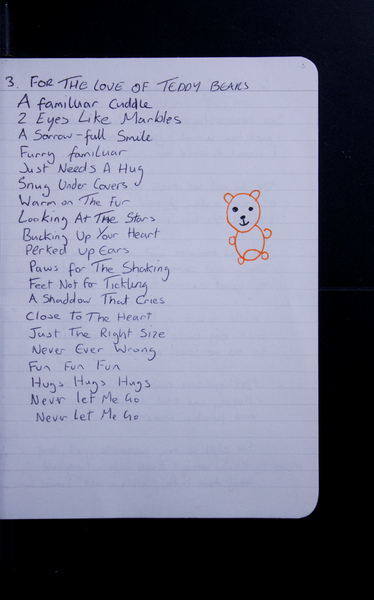 3. FOR THE LOVE OF TEDDY BEARS
A familuar Cuddle
2 Eyes Like Marbles
A Sorrow-full Smile
Furry familuar
Just Needs A Hug
Snug Under Covers
Warm on The Fur
Looking At The Stars
Bucking Up Your Heart
Perked Up Ears
Paws for The Shaking
Feet Not For Tickling
A Shaddow That Cries
Close to The Heart
Just The Right Size
Never Ever Wrong
Fun Fun Fun
Hugs Hugs Hugs
Nevr let Me Go
Nevr Let Me Go